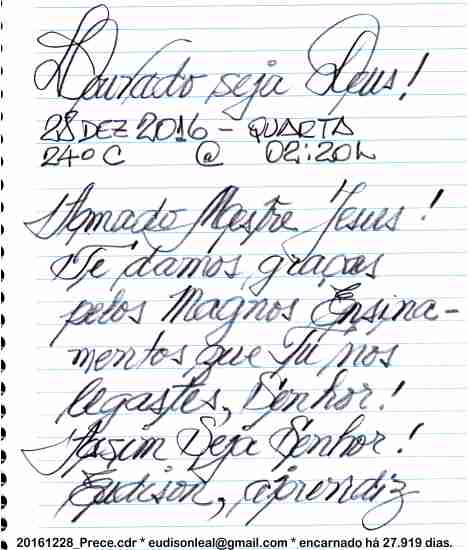 Louvado seja Deus!
28 DEZ 2016 - QUARTA
24º C @ 02:20h
Amado Mestre Jesus!
Te damos graças
pelos Magnos Ensina-
mentos que Tu nos
legastes, Senhor!
Assim Seja Senhor!
Eudison, aprendiz
20161228_Prece.cdr * eudisonleal@gmail.com * encarnado há 27.919 dias.